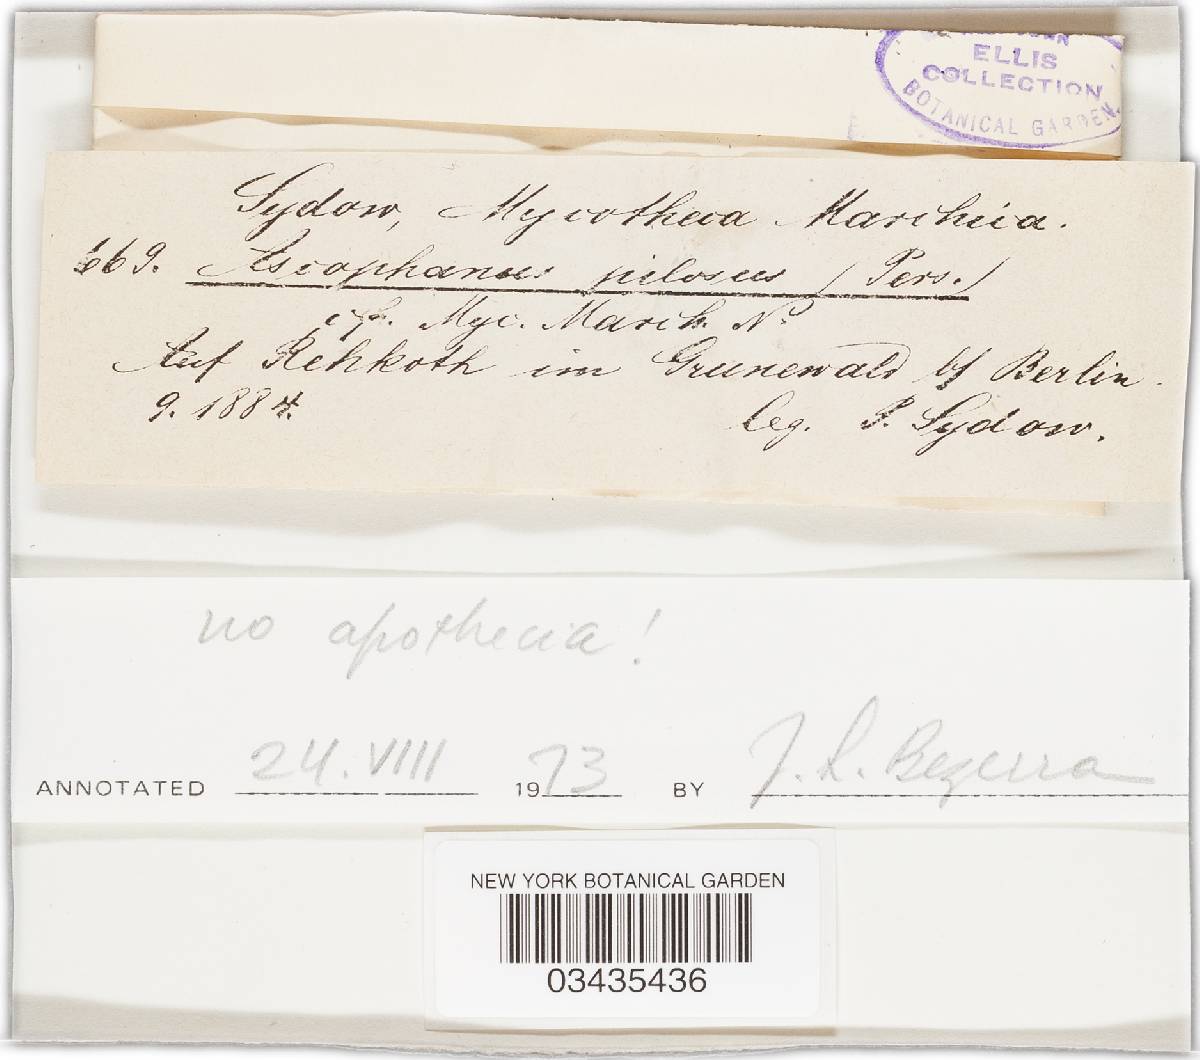 ELLIS
COLLECTION
BOTANICAL GARDEN.
Sydow, Mycotheca Marchica.
669. Ascophanus pilosus (Pers.)
cfr. Myc. March. No
Auf Rehkoth im Grunewald bf Berlin.
9. 1884. leg. P. Sydow.
no apothecia!
ANNOTATED 24.VIII 1973 BY J. L. Bezerra
NEW YORK BOTANICAL GARDEN
03435436